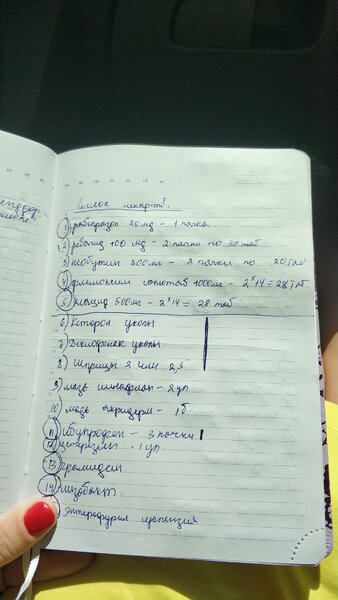 Список лекарств.
1) рабепразол 20 мг - 1 пачка.
2) ребагит 100 мг - 2 пачки по 30 таб
3) необутин 300мг - 3 пачки по 20 таб
4) флемоксин солютаб 1000мг - 2*14 = 28 таб.
5) клацид 500мг - 2*14 = 28 таб
6) Кеторол уколы
7) Диклофенак уколы
8) Шприцы 2 или 2,5
9) мазь - 2уп
10) мазь - 1 б
11) Ибупрофен - 3 пачки
12) цетиризин - 1 уп
13) грамидин
14) лизобакт.
Энтерофурил суспензия